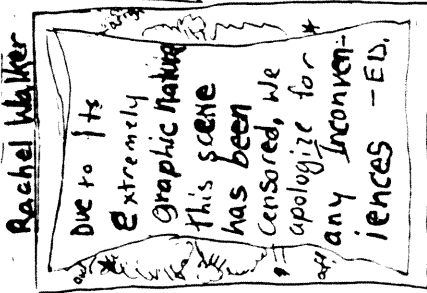 Rachel Walker
Due to Its
Extremely
graphic Nature
this scene
has been
censored, we
apologize for
any Inconven-
iences - ED.